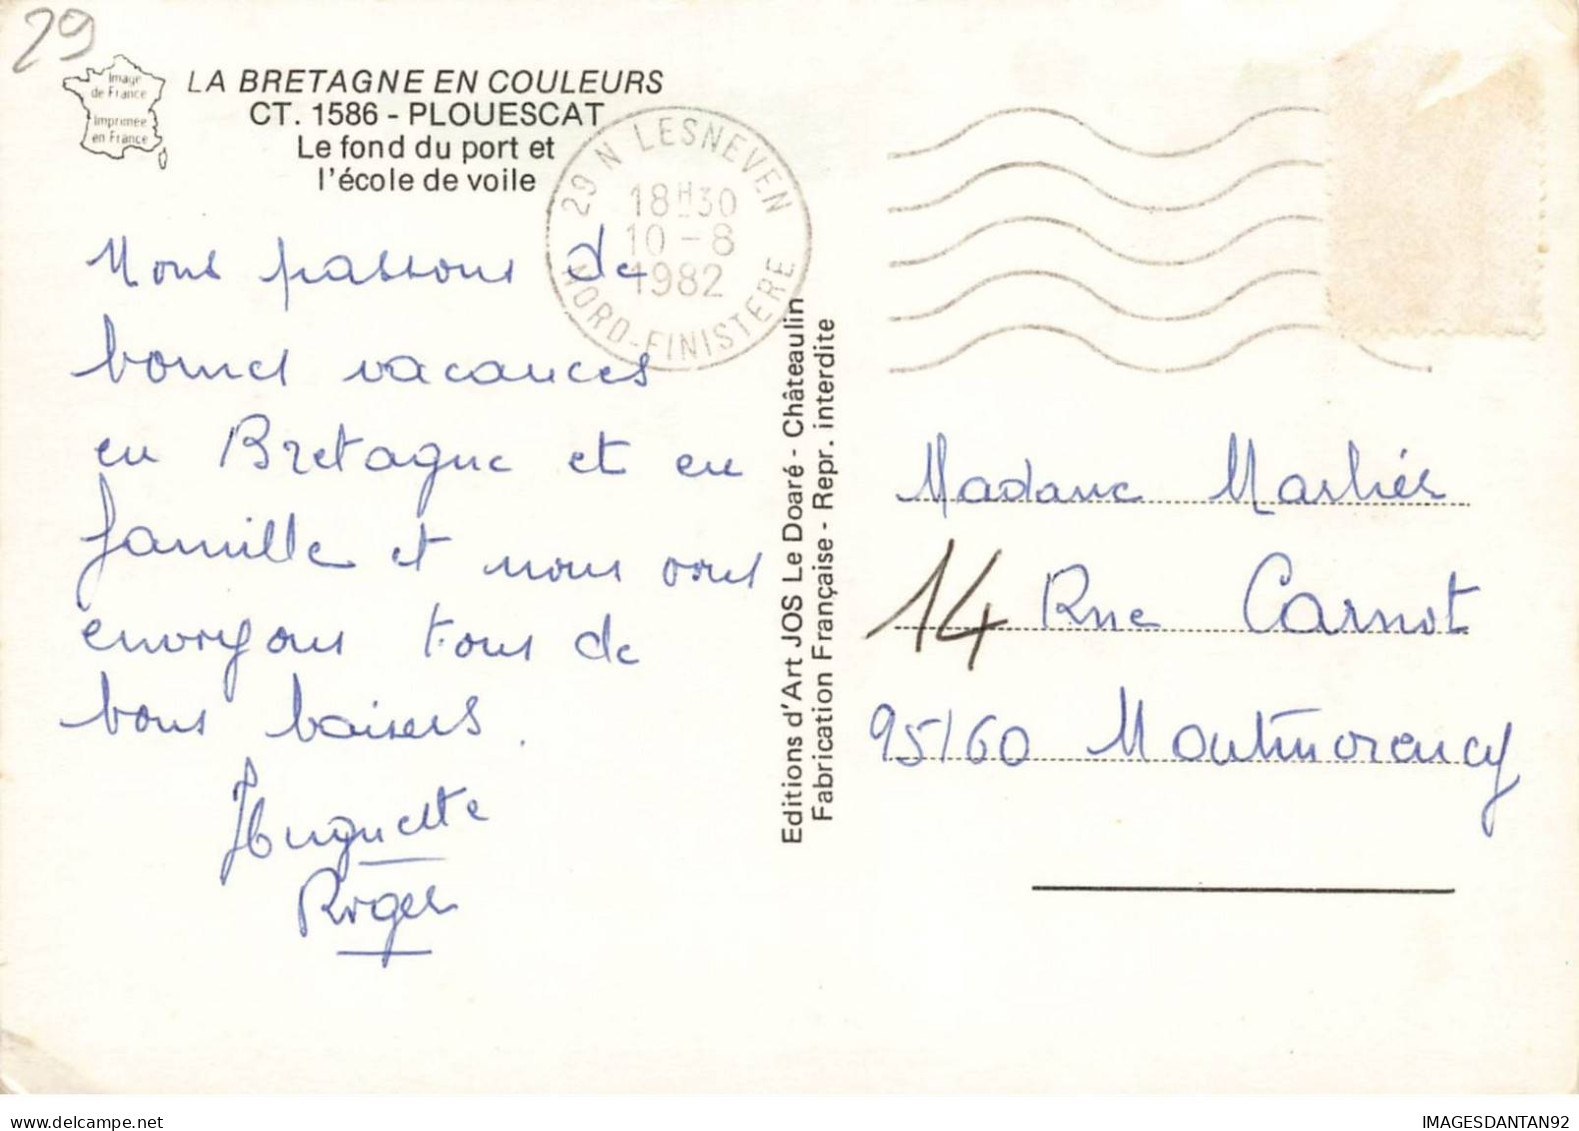 29
Image
de France
Imprimée
en France
LA BRETAGNE EN COULEURS
CT. 1586 - PLOUESCAT
Le fond du port et
l'école de voile
29 N LESNEVEN
18H30
10-8
1982
NORD-FINISTERE
Nous passons de
bonnes vacances
en Bretagne et en
famille et nous vous
envoyons tous de
bons baisers.
Huguette
Roger
Editions d'Art JOS Le Doaré - Châteaulin
Fabrication Française - Repr. interdite
Madame Marlier
14 Rue Carnot
95160 Montmorency
www.delcampe.net
IMAGESDANTAN92